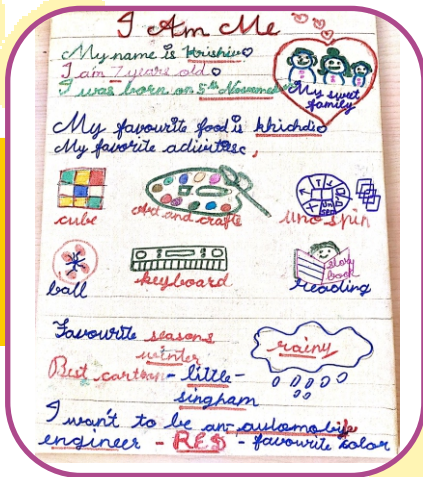 I Am Me
My name is Krishiv
I am 7 years old
I was born on 5th November
My sweet
family
My favourite food is khichdi
My favorite adivitese,
cube
Art and crafts
uno spin
ball
keyboard
story
book
reading
Favourite seasons
winter
rainy
Best cartoon - little -
singham
I want to be an automobile
engineer - RED - favourite color